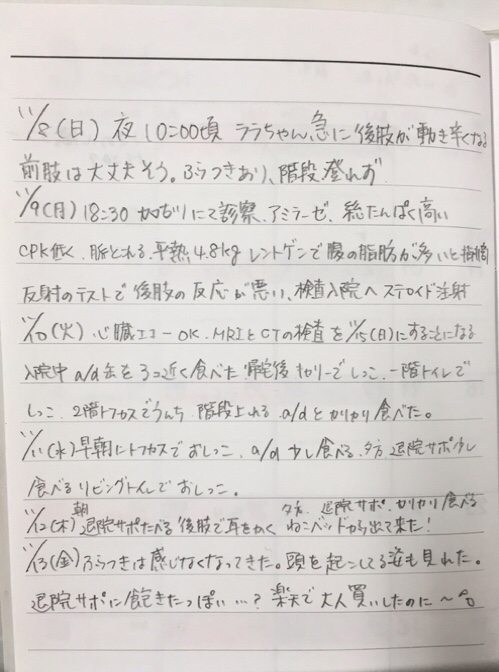 11/8(日) 夜10:00頃 ララちゃん急に後肢が動き辛くなる
前肢は大丈夫そう。ふらつきあり、階段登れず
11/9(月)18:30 にて診察、アミラーゼ、総たんぱく高い
CPK低く、脈とれる、平熱4.8kg レントゲンで腹の脂肪が多いと指摘
反射のテストで後肢の反応が悪い、検査入院へ ステロイド注射
11/10(火) 心臓エコーOK、MRIとCTの検査を11/15(日)にすることになる
入院中 a/d缶を3コ近く食べた 帰宅後キャリーでしっこ、一階トイレで
しっこ、2階トフカスでうんち、階段上れる、a/dとカリカリ食べた。
11/11(水)早朝にトフカスでおしっこ、a/d少し食べる、夕方、退院サポ少し
食べるリビングトイレでおしっこ。
11/12(木)朝 退院サポたべる 後肢で耳をかく 夕方、退院サポ、カリカリ食べる ねこベッドから出て来た!
11/13(金)ふらつきは感じなくなってきた。頭を起こしてる姿も見れた。
退院サポに飽きたっぽい…? 楽天で大人買いしたのに〜